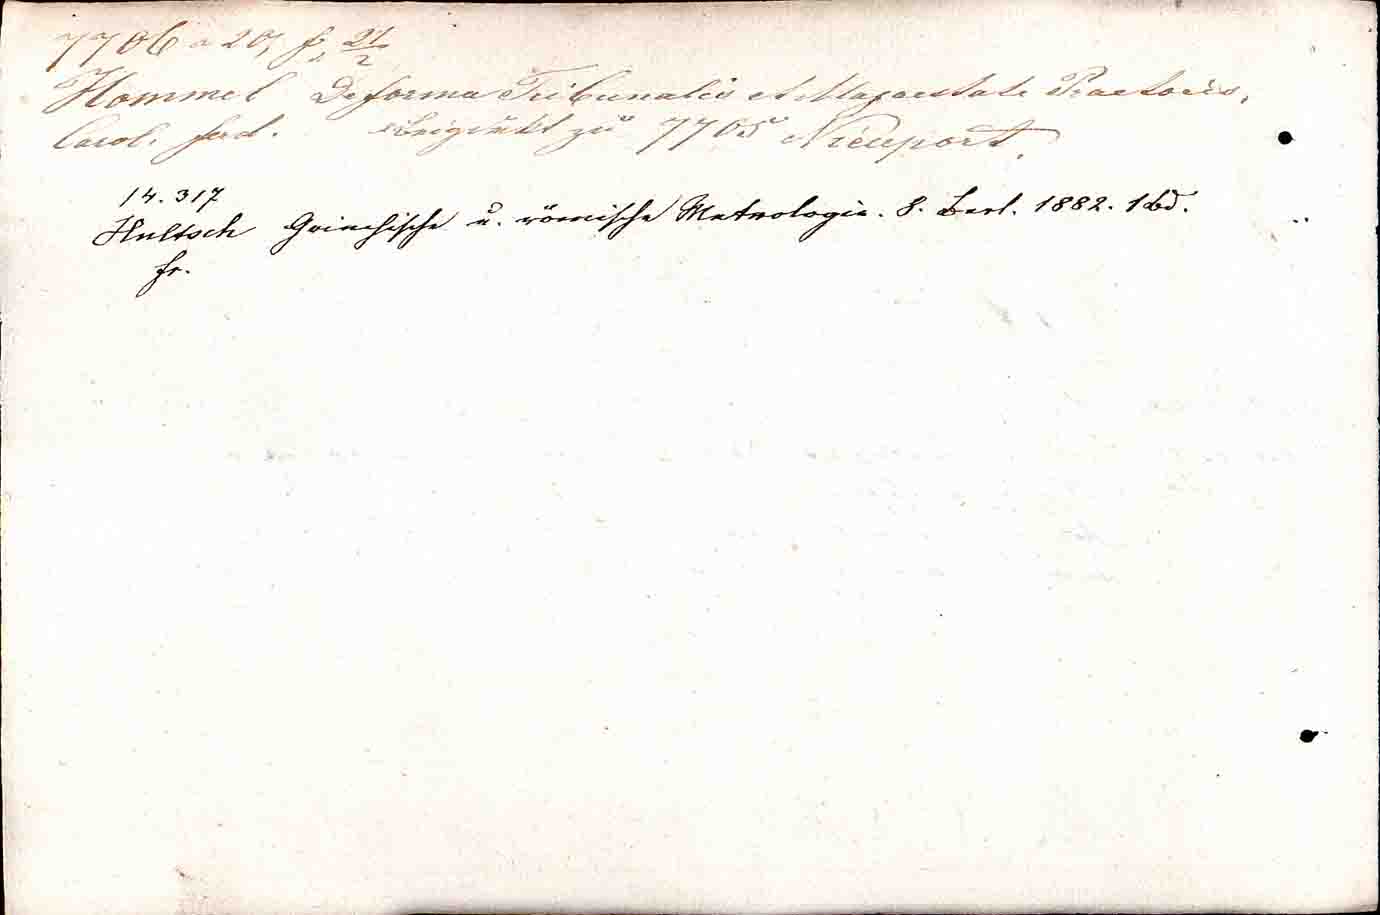 7706 a 20, f. 21/2
Hommel De forma Tribunalis et Majaestate Praetoris,
Carol. Ferd. Beigeückt zu 7705 Nieuport.
14.317
Hultsch Griechische u. römische Metrologie. 8. Berl. 1882. 1 Bd.
Fr.